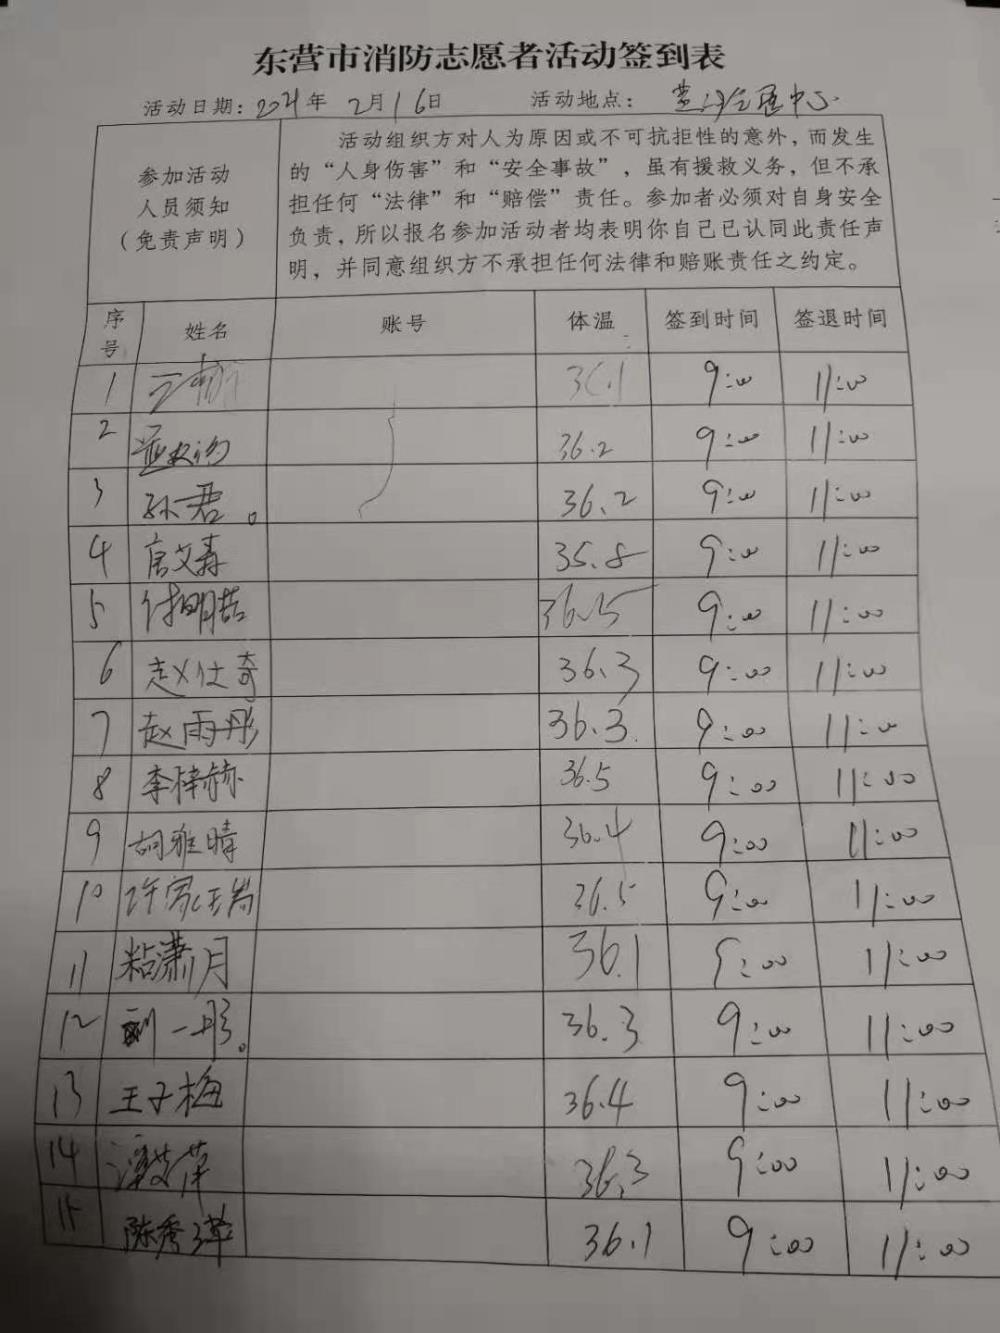 东营市消防志愿者活动签到表
活动日期：2021年 2月16日 活动地点：中心
参加活动
人员须知
（免责声明）
活动组织方对人为原因或不可抗拒性的意外，而发生
的“人身伤害”和“安全事故”，虽有援救义务，但不承
担任何“法律”和“赔偿”责任。参加者必须对自身安全
负责，所以报名参加活动者均表明你自己已认同此责任声
明，并同意组织方不承担任何法律和赔账责任之约定。
序号 姓名 账号 体温 签到时间 签退时间
1 36.1 9:00 11:00
2 36.2 9:00 11:00
3 孙君。 36.2 9:00 11:00
4 唐艾森 35.8 9:00 11:00
5 付明喆 36.5 9:00 11:00
6 赵仕奇 36.3 9:00 11:00
7 赵雨彤 36.3 9:00 11:00
8 李梓赫 36.5 9:00 11:00
9 胡雅晴 36.4 9:00 11:00
10 许家 36.5 9:00 11:00
11 粘潇月 36.1 9:00 11:00
12 刘一彤。 36.3 9:00 11:00
13 王子梅 36.4 9:00 11:00
14 36.3 9:00 11:00
15 陈秀 36.1 9:00 11:00